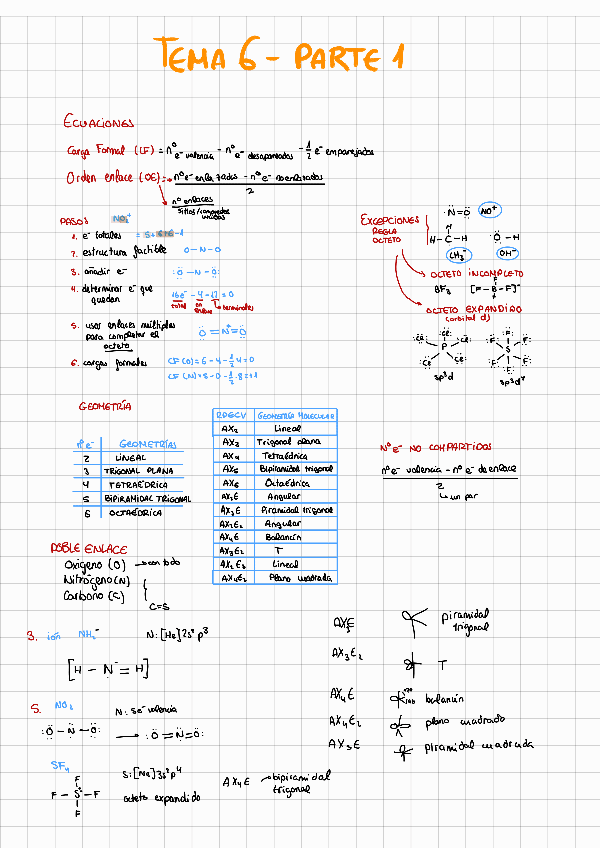 TEMA 6 - PARTE 1
ECUACIONES
Carga Formal (CF) = nº e⁻ valencia - nº e⁻ desapareados - 1/2 e⁻ emparejados
Orden enlace (OE) = nº e⁻ enlazados - nº e⁻ no enlazados
2
nº enlaces
PASOS
NO₂⁺
1. e⁻ totales = 5+6+6-1
2. estructura factible O-N-O
3. añadir e⁻ :Ö-N-Ö:
4. determinar e⁻ que quedan
16e⁻ - 4 - 12 = 0
total
en enlace
terminales
5. usar enlaces múltiples para completar el octeto
Ö=N⁺=Ö
6. cargas formales
CF (O) = 6 - 4 - 1/2 4 = 0
CF (N) = 5 - 0 - 1/2 · 8 = +1
EXCEPCIONES
REGLA OCTETO
·N=O NO⁺
H
H-C-H CH₃⁻
O-H OH⁻
OCTETO INCOMPLETO
BF₃ [F-B-F]⁻
F
OCTETO EXPANDIDO
(orbital d)
Cl Cl Cl P Cl Cl
sp³d
F F F S F F F
sp³d²
GEOMETRÍA
nº e⁻ GEOMETRÍAS
2 LINEAL
3 TRIGONAL PLANA
4 TETRAÉDRICA
5 BIPIRAMIDAL TRIGONAL
6 OCTAÉDRICA
RPECV GEOMETRÍA MOLECULAR
AX₂ Lineal
AX₃ Trigonal plana
AX₄ Tetraédrica
AX₅ Bipiramidal trigonal
AX₆ Octaédrica
AX₂E Angular
AX₃E Piramidal trigonal
AX₂E₂ Angular
AX₄E Balancín
AX₃E₂ T
AX₂E₃ Lineal
AX₄E₂ Plano cuadrada
Nº e⁻ NO COMPARTIDOS
nº e⁻ valencia - nº e⁻ de enlace
2
un par
DOBLE ENLACE
Oxígeno (O) → con todo
Nitrógeno (N)
Carbono (C)
C=S
3. ión NH₂⁻ N: [He] 2s² p³
[H - N = H]
5. NO₂ N: 5e⁻ valencia
:Ö - N - Ö: → :Ö = N = Ö:
SF₄ S: [Ne] 3s² p⁴
F
F - S - F
F
octeto expandido
AX₄E → bipiramidal trigonal
AX₃E piramidal trigonal
AX₃E₂ T
AX₄E balancín
AX₄E₂ plano cuadrado
AX₅E piramidal cuadrada